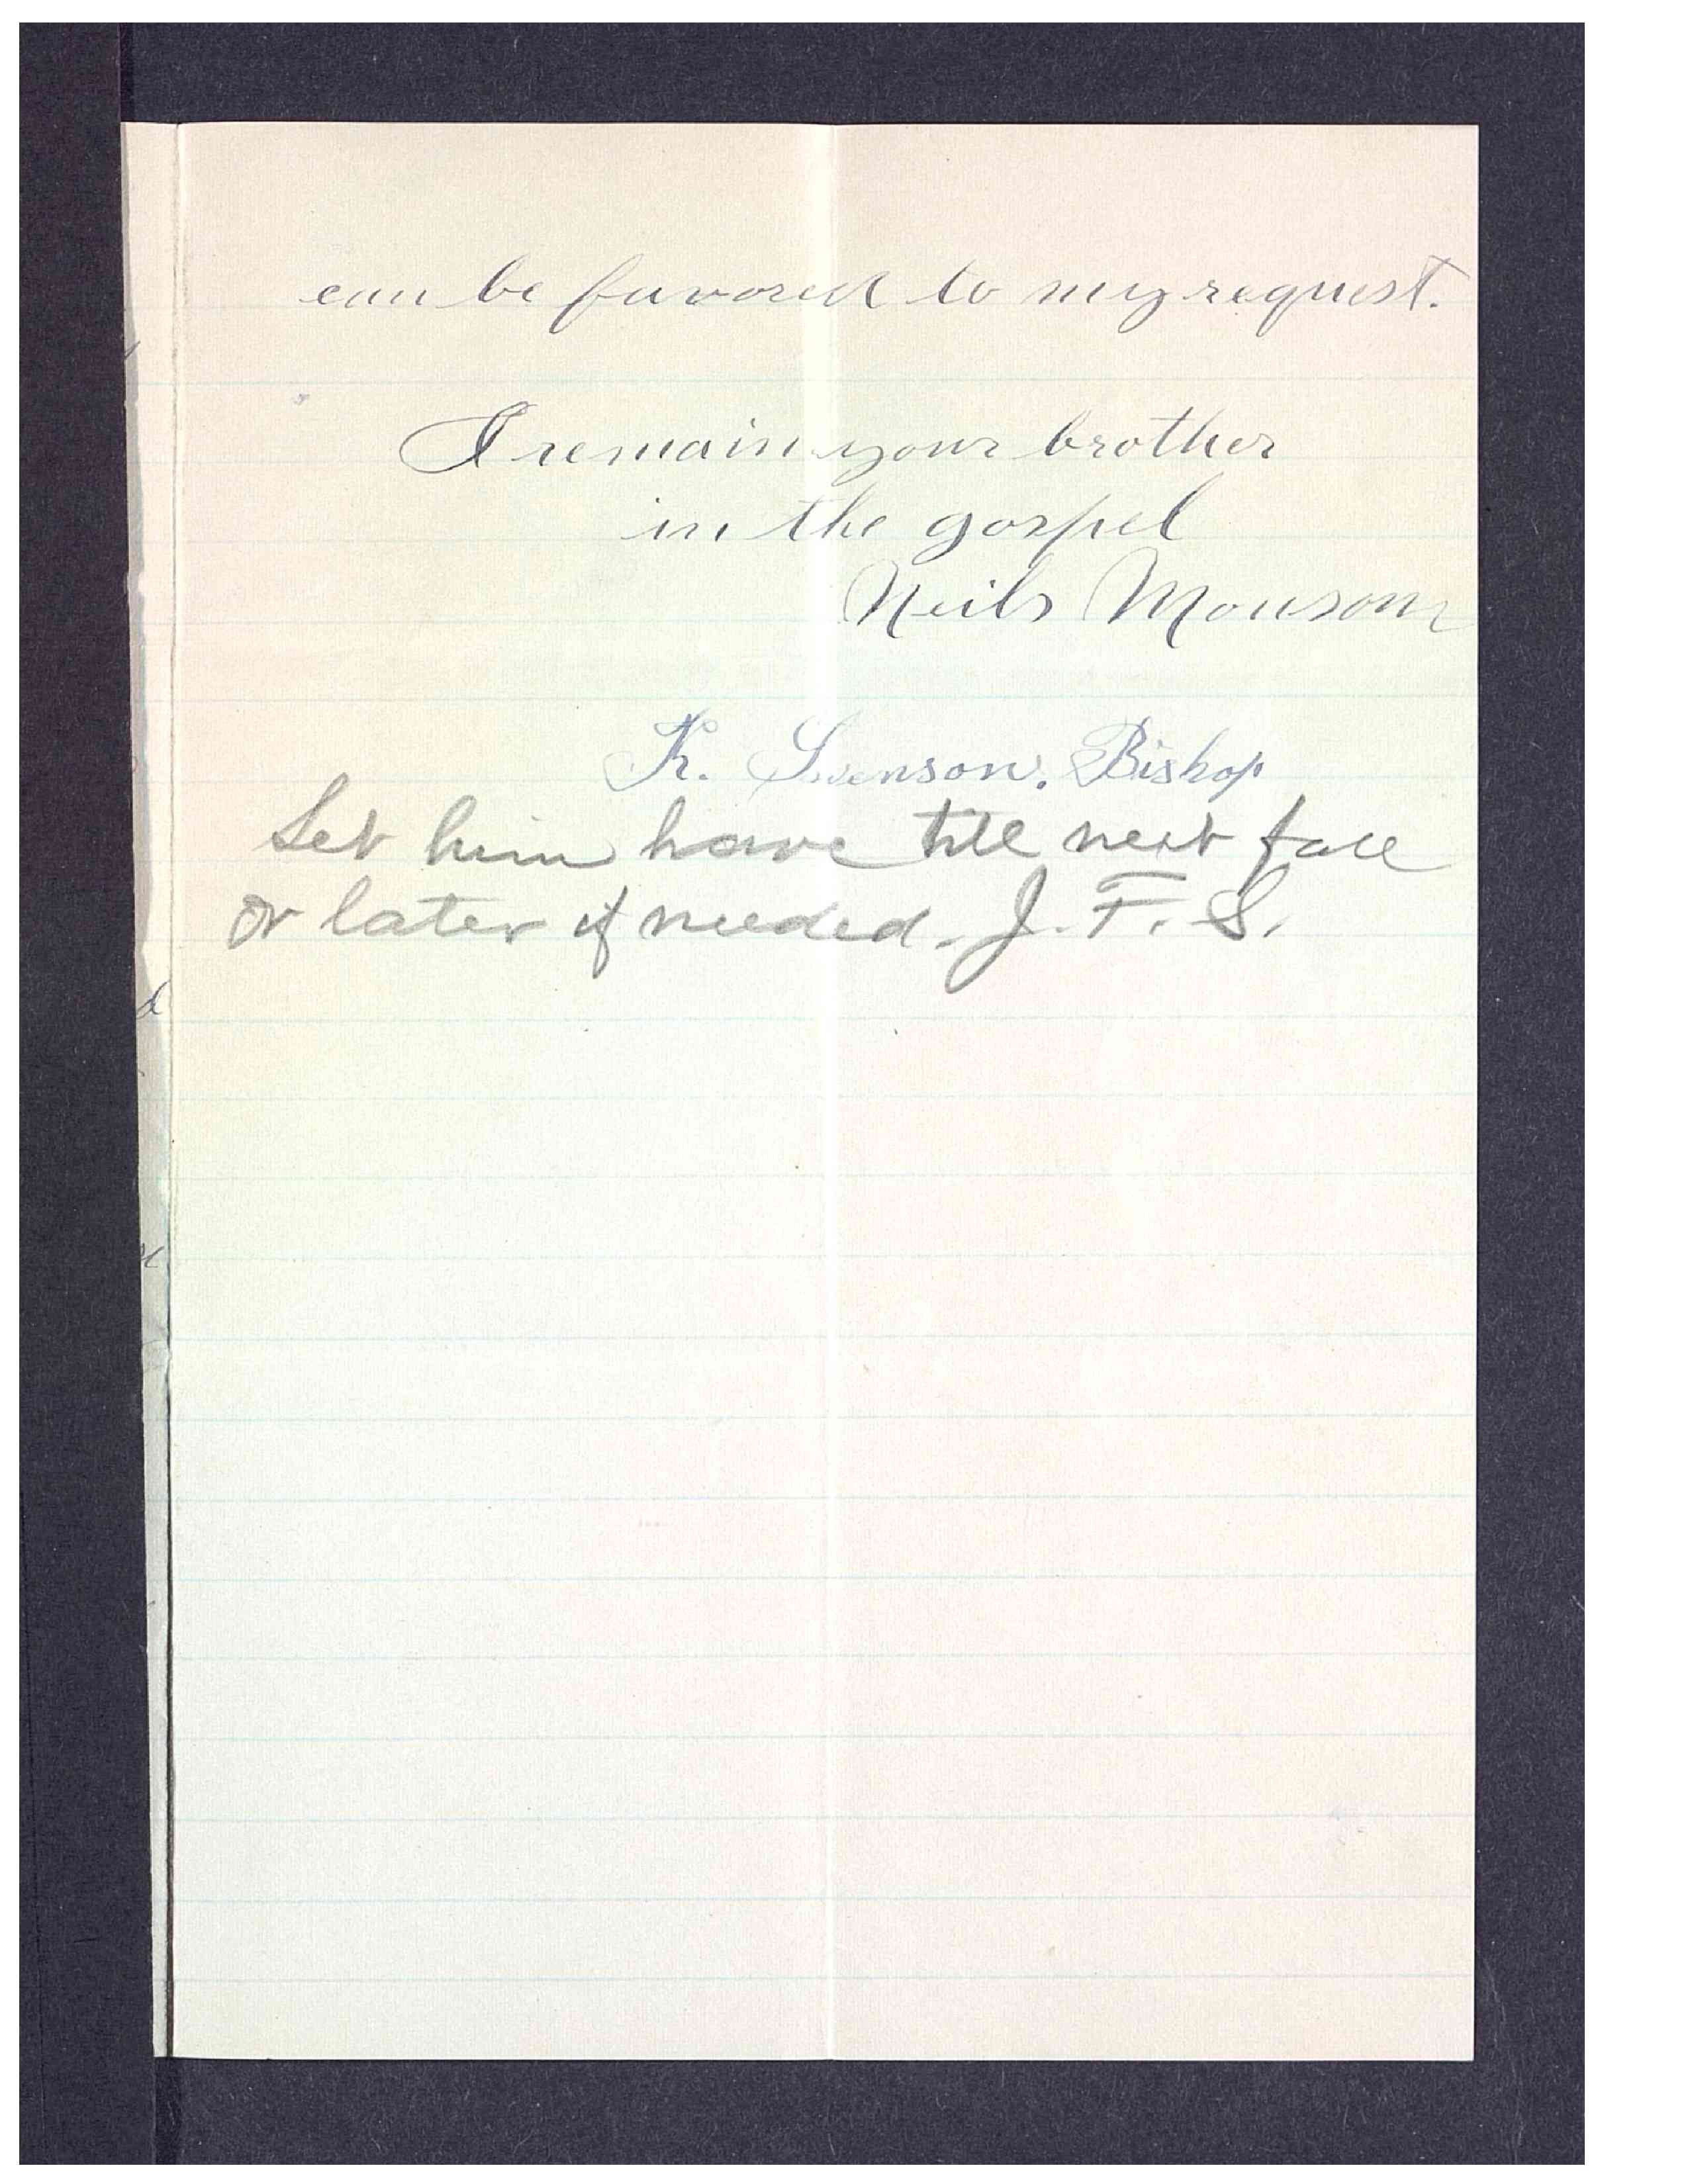 can be favored to my request.
I remain your brother
in the gospel
Neils Monson
K. Swenson, Bishop
Let him have till next fall
or later if needed. J. F. S.